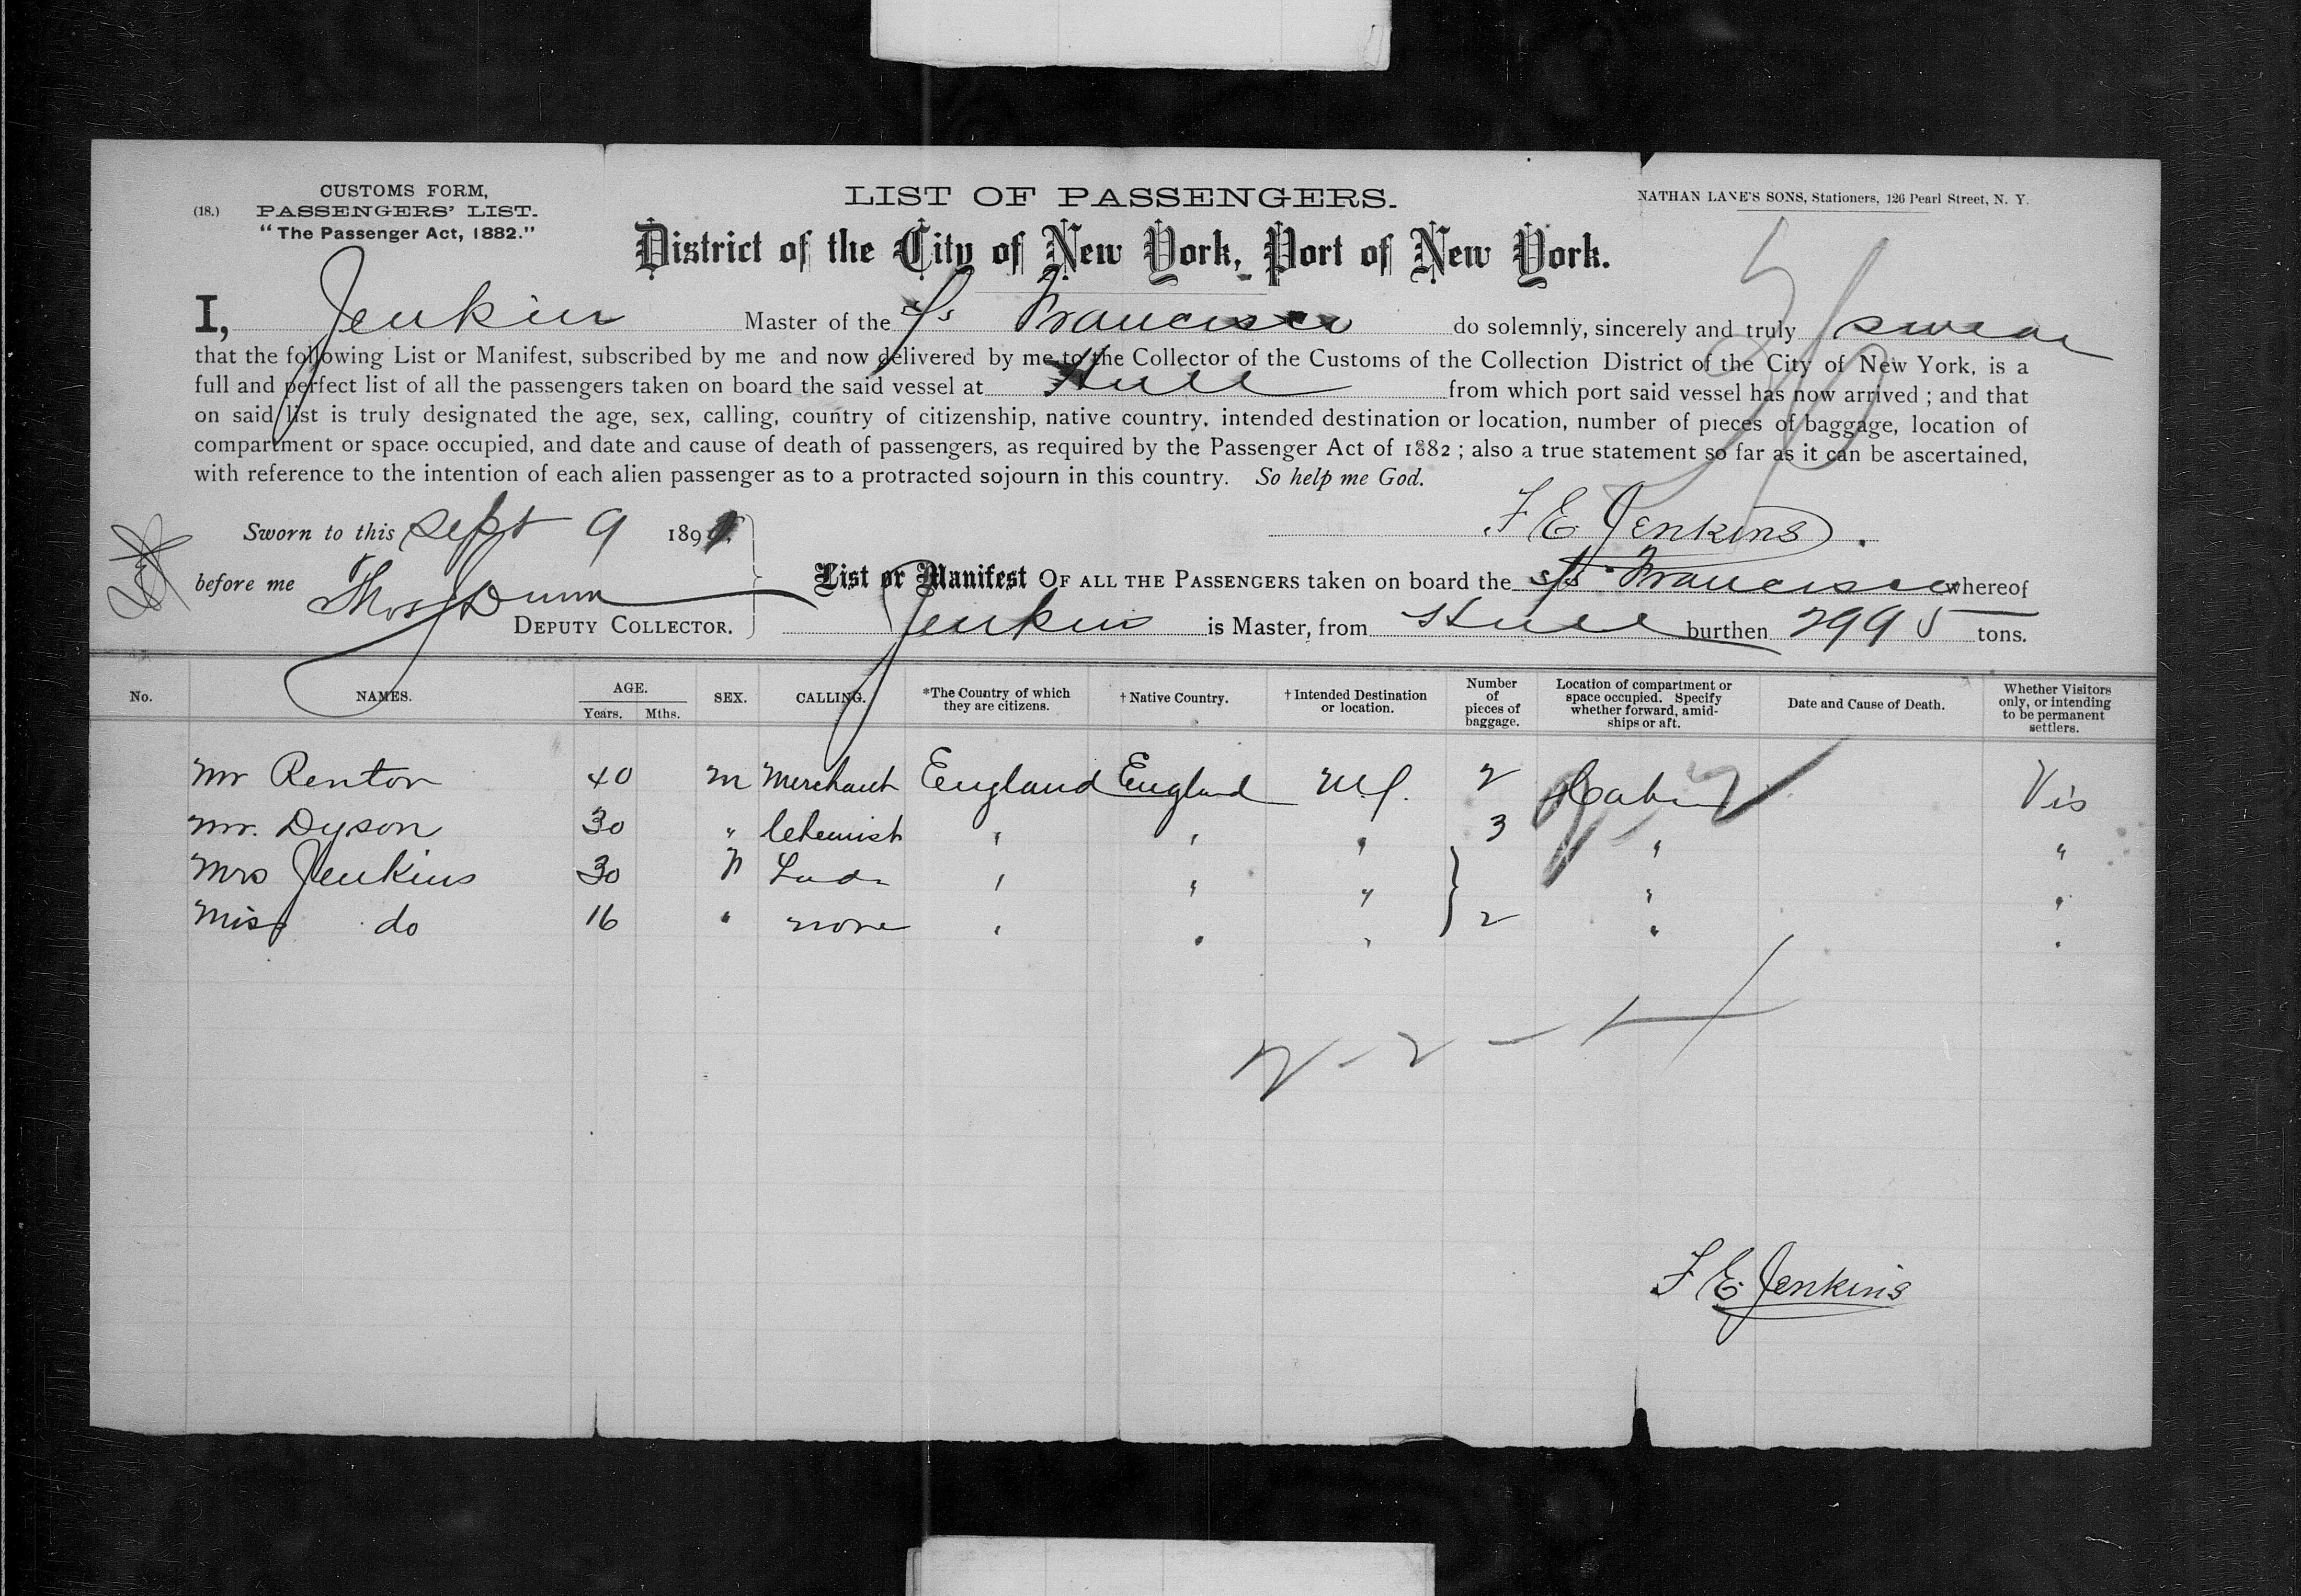 CUSTOMS FORM,
(18.) PASSENGERS' LIST.
"The Passenger Act, 1882."
LIST OF PASSENGERS.
NATHAN LANE'S SONS, Stationers, 126 Pearl Street, N. Y.
District of the City of New York, Port of New York.
I, Jenkins Master of the Ss Francisco do solemnly, sincerely and truly swear
that the following List or Manifest, subscribed by me and now delivered by me to the Collector of the Customs of the Collection District of the City of New York, is a
full and perfect list of all the passengers taken on board the said vessel at Hull from which port said vessel has now arrived ; and that
on said list is truly designated the age, sex, calling, country of citizenship, native country, intended destination or location, number of pieces of baggage, location of
compartment or space occupied, and date and cause of death of passengers, as required by the Passenger Act of 1882 ; also a true statement so far as it can be ascertained,
with reference to the intention of each alien passenger as to a protracted sojourn in this country. So help me God.
F E Jenkins.
Sworn to this Sept 9 189
before me Thos Dunn
DEPUTY COLLECTOR.
List or Manifest OF ALL THE PASSENGERS taken on board the S/S Francisco whereof
Jenkins is Master, from Hull burthen 2995 tons.
No. NAMES. AGE. Years. Mths. SEX. CALLING. *The Country of which they are citizens. † Native Country. † Intended Destination or location. Number of pieces of baggage. Location of compartment or space occupied. Specify whether forward, amidships or aft. Date and Cause of Death. Whether Visitors only, or intending to be permanent settlers.
Mr Renton 40 M Merchant England England 2 Cabin Vis
Mr. Dyson 30 " Chemist " " " 3 " "
Mrs Jenkins 30 Lady " " " " "
Miss do 16 " none " " " 2 " "
2 - 2 -
F E Jenkins